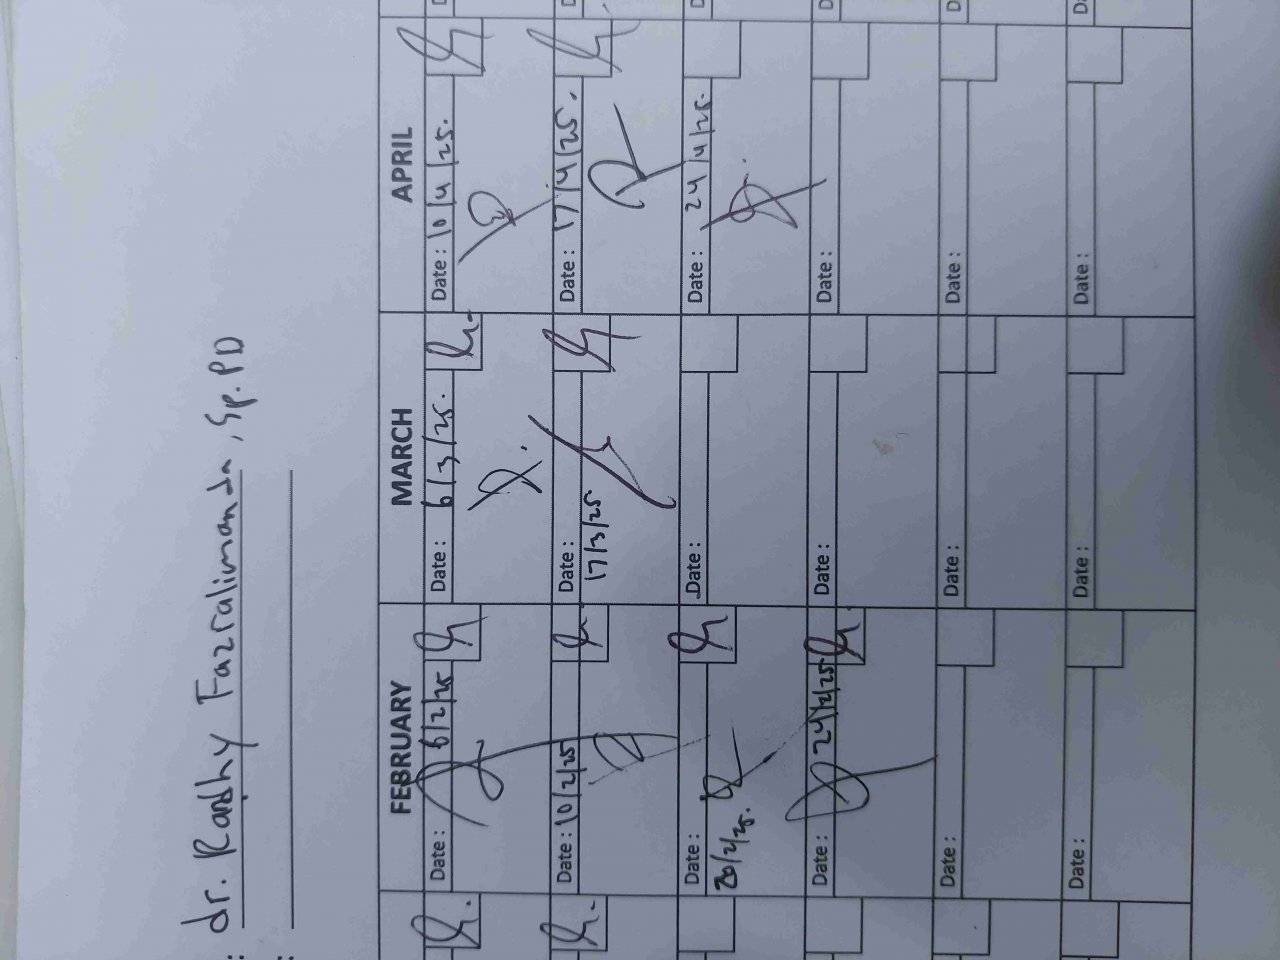 : dr. Randhy Fazralimanda, Sp.PD
:
FEBRUARY MARCH APRIL
Date : 6/2/25 Date : 6/3/25. Date : 10/4/25.
Date : 10/2/25 Date : 17/3/25 Date : 17/4/25.
Date : 20/2/25. Date : Date : 24/4/25.
Date : 24/2/25 Date : Date :
Date : Date : Date :
Date : Date : Date :